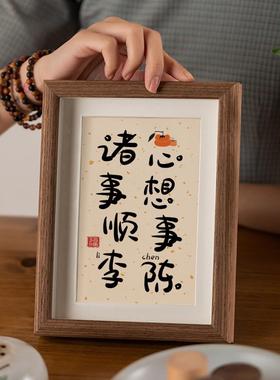 心想事陈
chen
诸事顺李
li